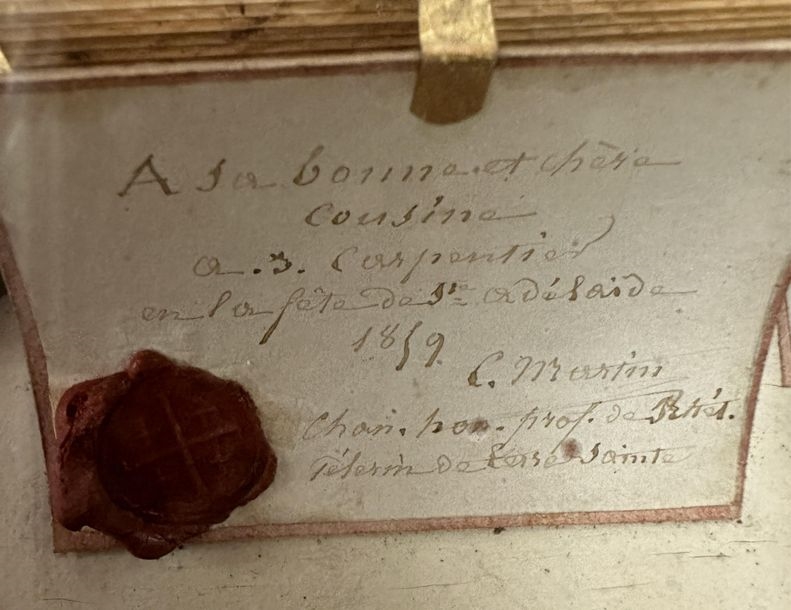 A sa bonne et chère
cousine
a. z. Carpentier
en la fête de Ste adélaïde
1859
C. Martin
Chan. hon. prof. de Rhét.
Pélerin de terre sainte